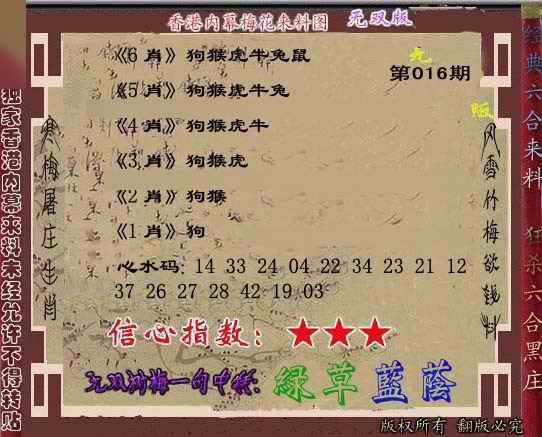 香港内幕梅花来料图 无双版
《6 肖》狗猴虎牛兔鼠
无
第016期
《5 肖》狗猴虎牛兔
版
《4 肖》狗猴虎牛
《3 肖》狗猴虎
《2 肖》狗猴
《1 肖》狗
心水码: 14 33 24 04 22 34 23 21 12
37 26 27 28 42 19 03
信心指数: ★★★
綠草藍蔭
独家香港内幕来料未经允许不得转贴
寒梅屠庄生肖
风雪竹梅欲钱料
经典六合来料
狂杀六合黑庄
版权所有 翻版必究